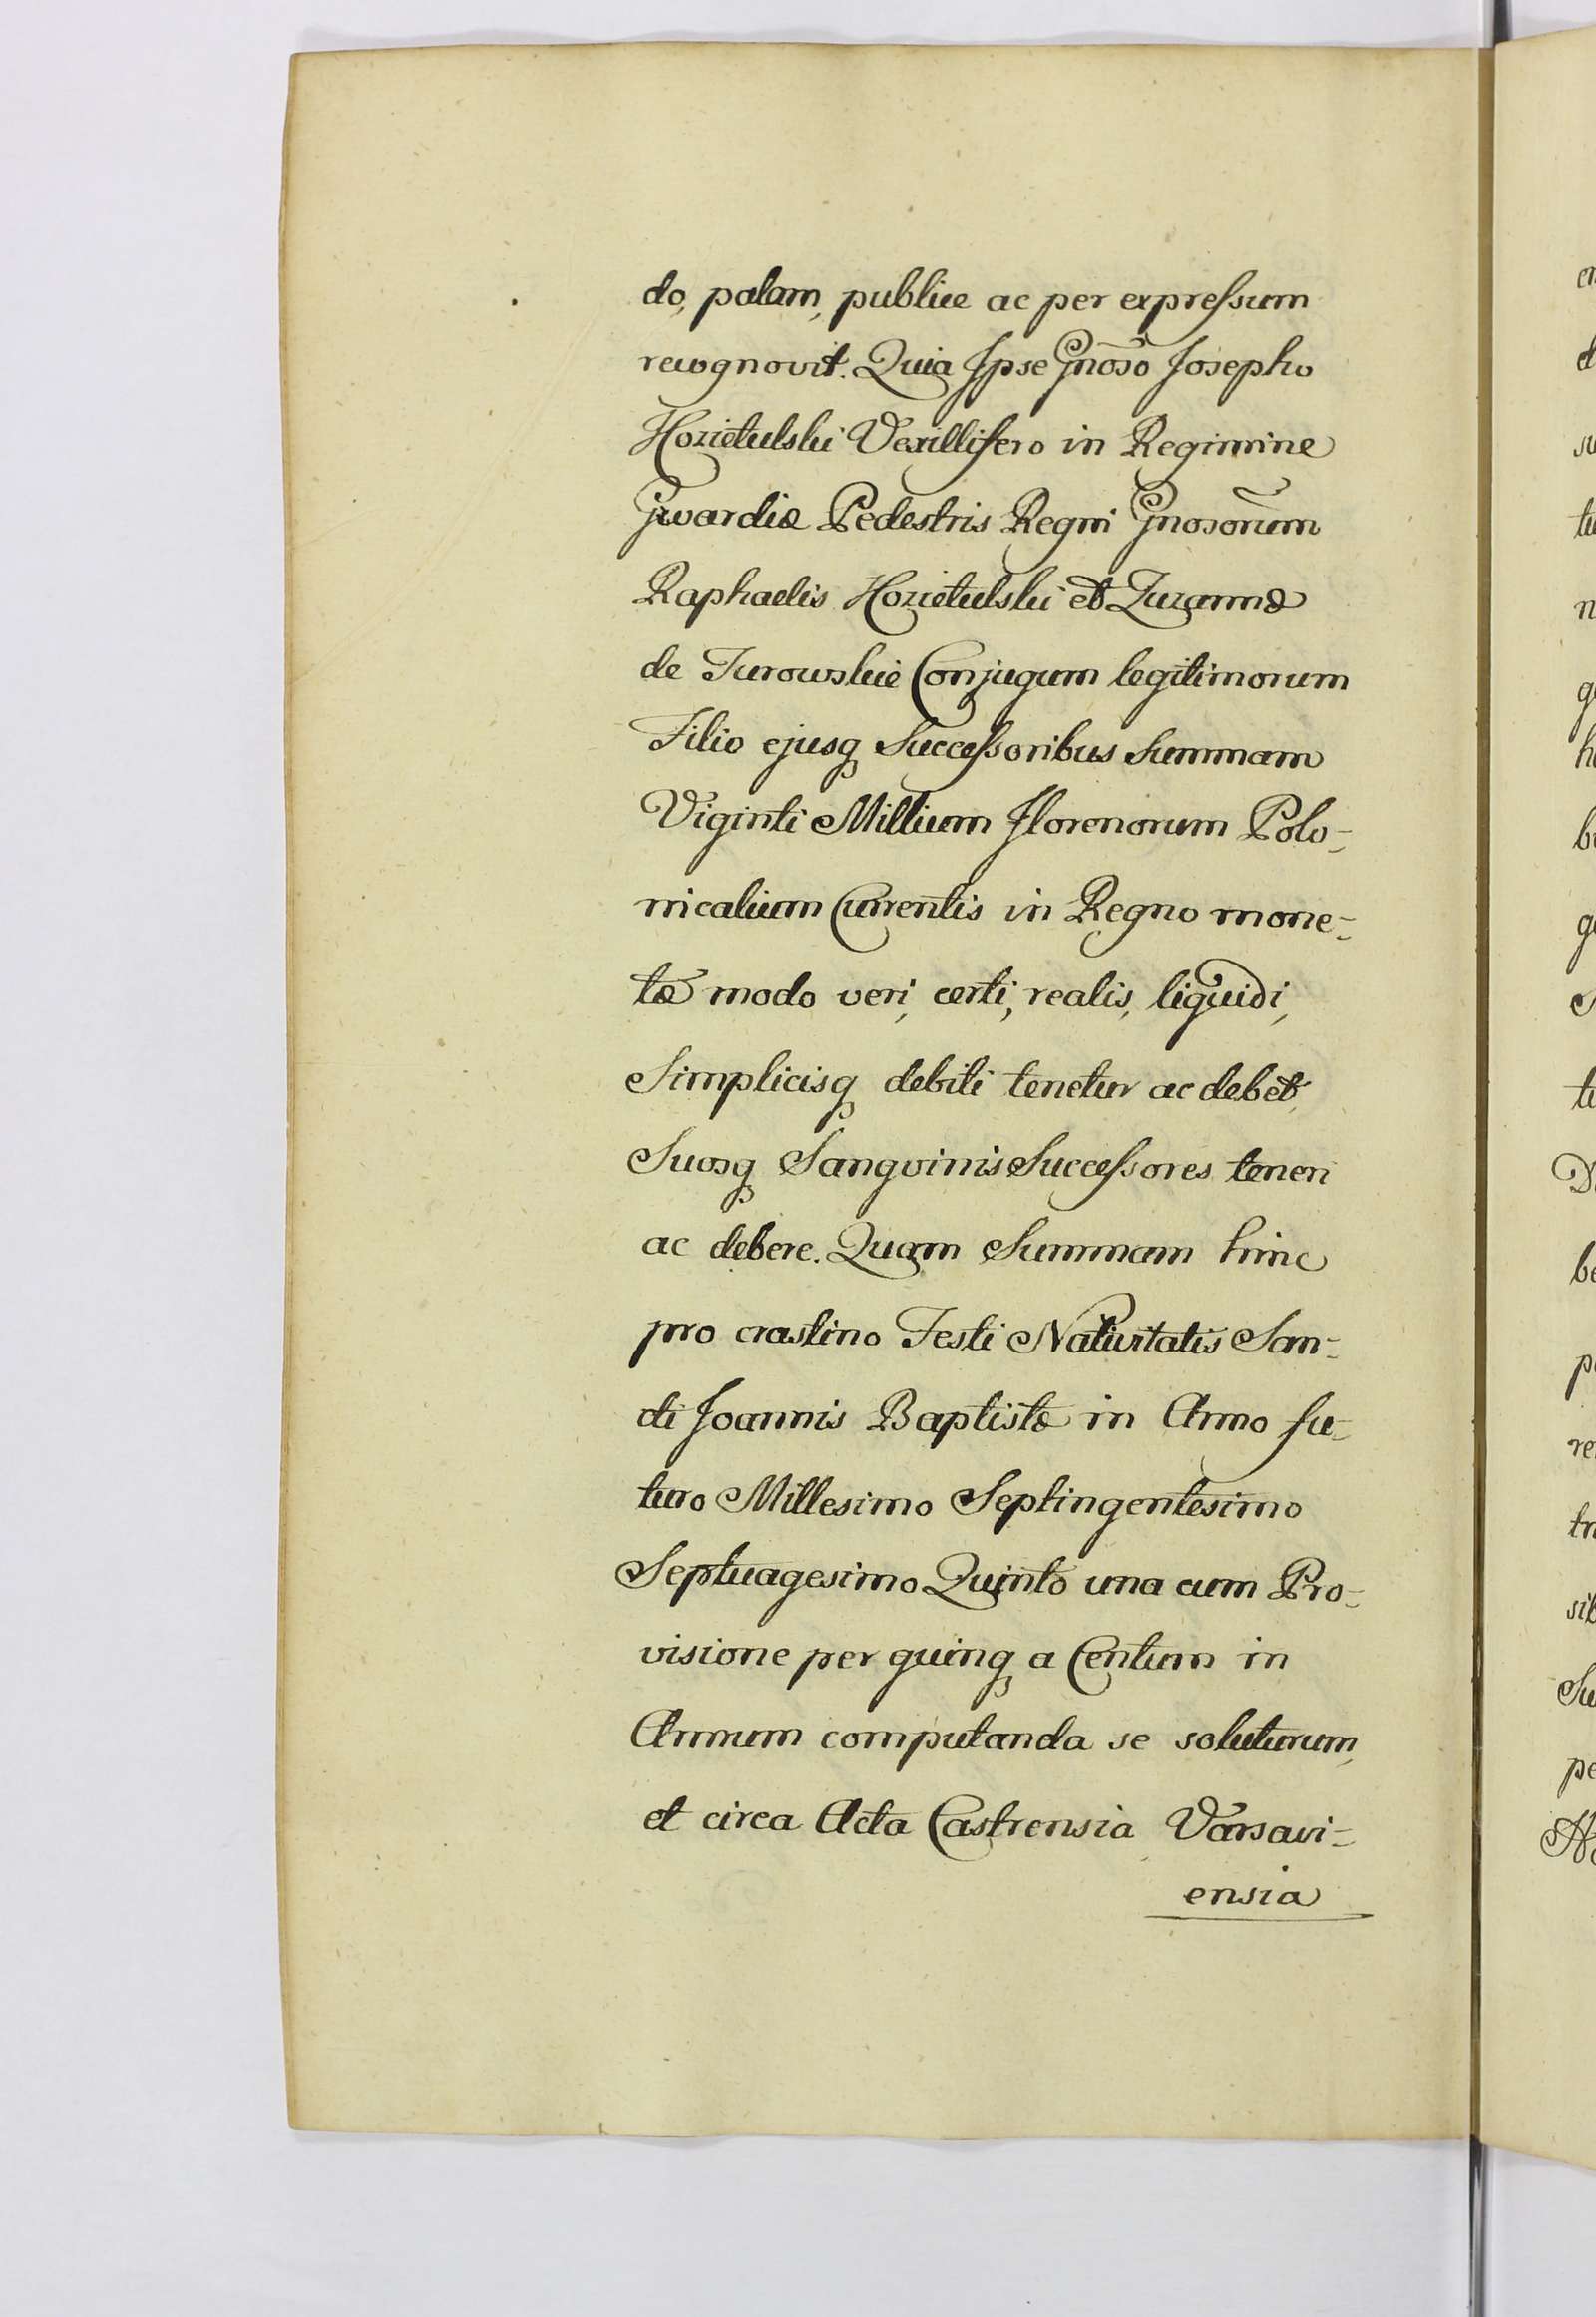 do, palam, publice ac per expreſsum
recognovit. Quia Ipse Gnõso Josepho
Kozietulski Vexillifero in Regimine
Gwardiæ Pedestris Regni Gnosorũm
Raphaelis Kozietulski et Zuzannæ
de Turowskie Conjugum legitimorum
Filio ejusq Succeſsoribus Summam
Viginti Millium Florenorum Polo-
nicalium Currentis in Regno mone-
tæ modo veri, certi, realis, liquidi,
Simplicisq debiti tenetur ac debet
Suosq Sangvinis Succeſsores teneri
ac debere. Quam Summam hinc
pro crastino Festi Nativitatis San-
cti Joannis Baptistæ in Anno fu-
turo Millesimo Septingentesimo
Septuagesimo Quinto una cum Pro-
visione per quinq a Centum in
Annum computanda se soluturum,
et circa Acta Castrensia Varsavi-
ensia